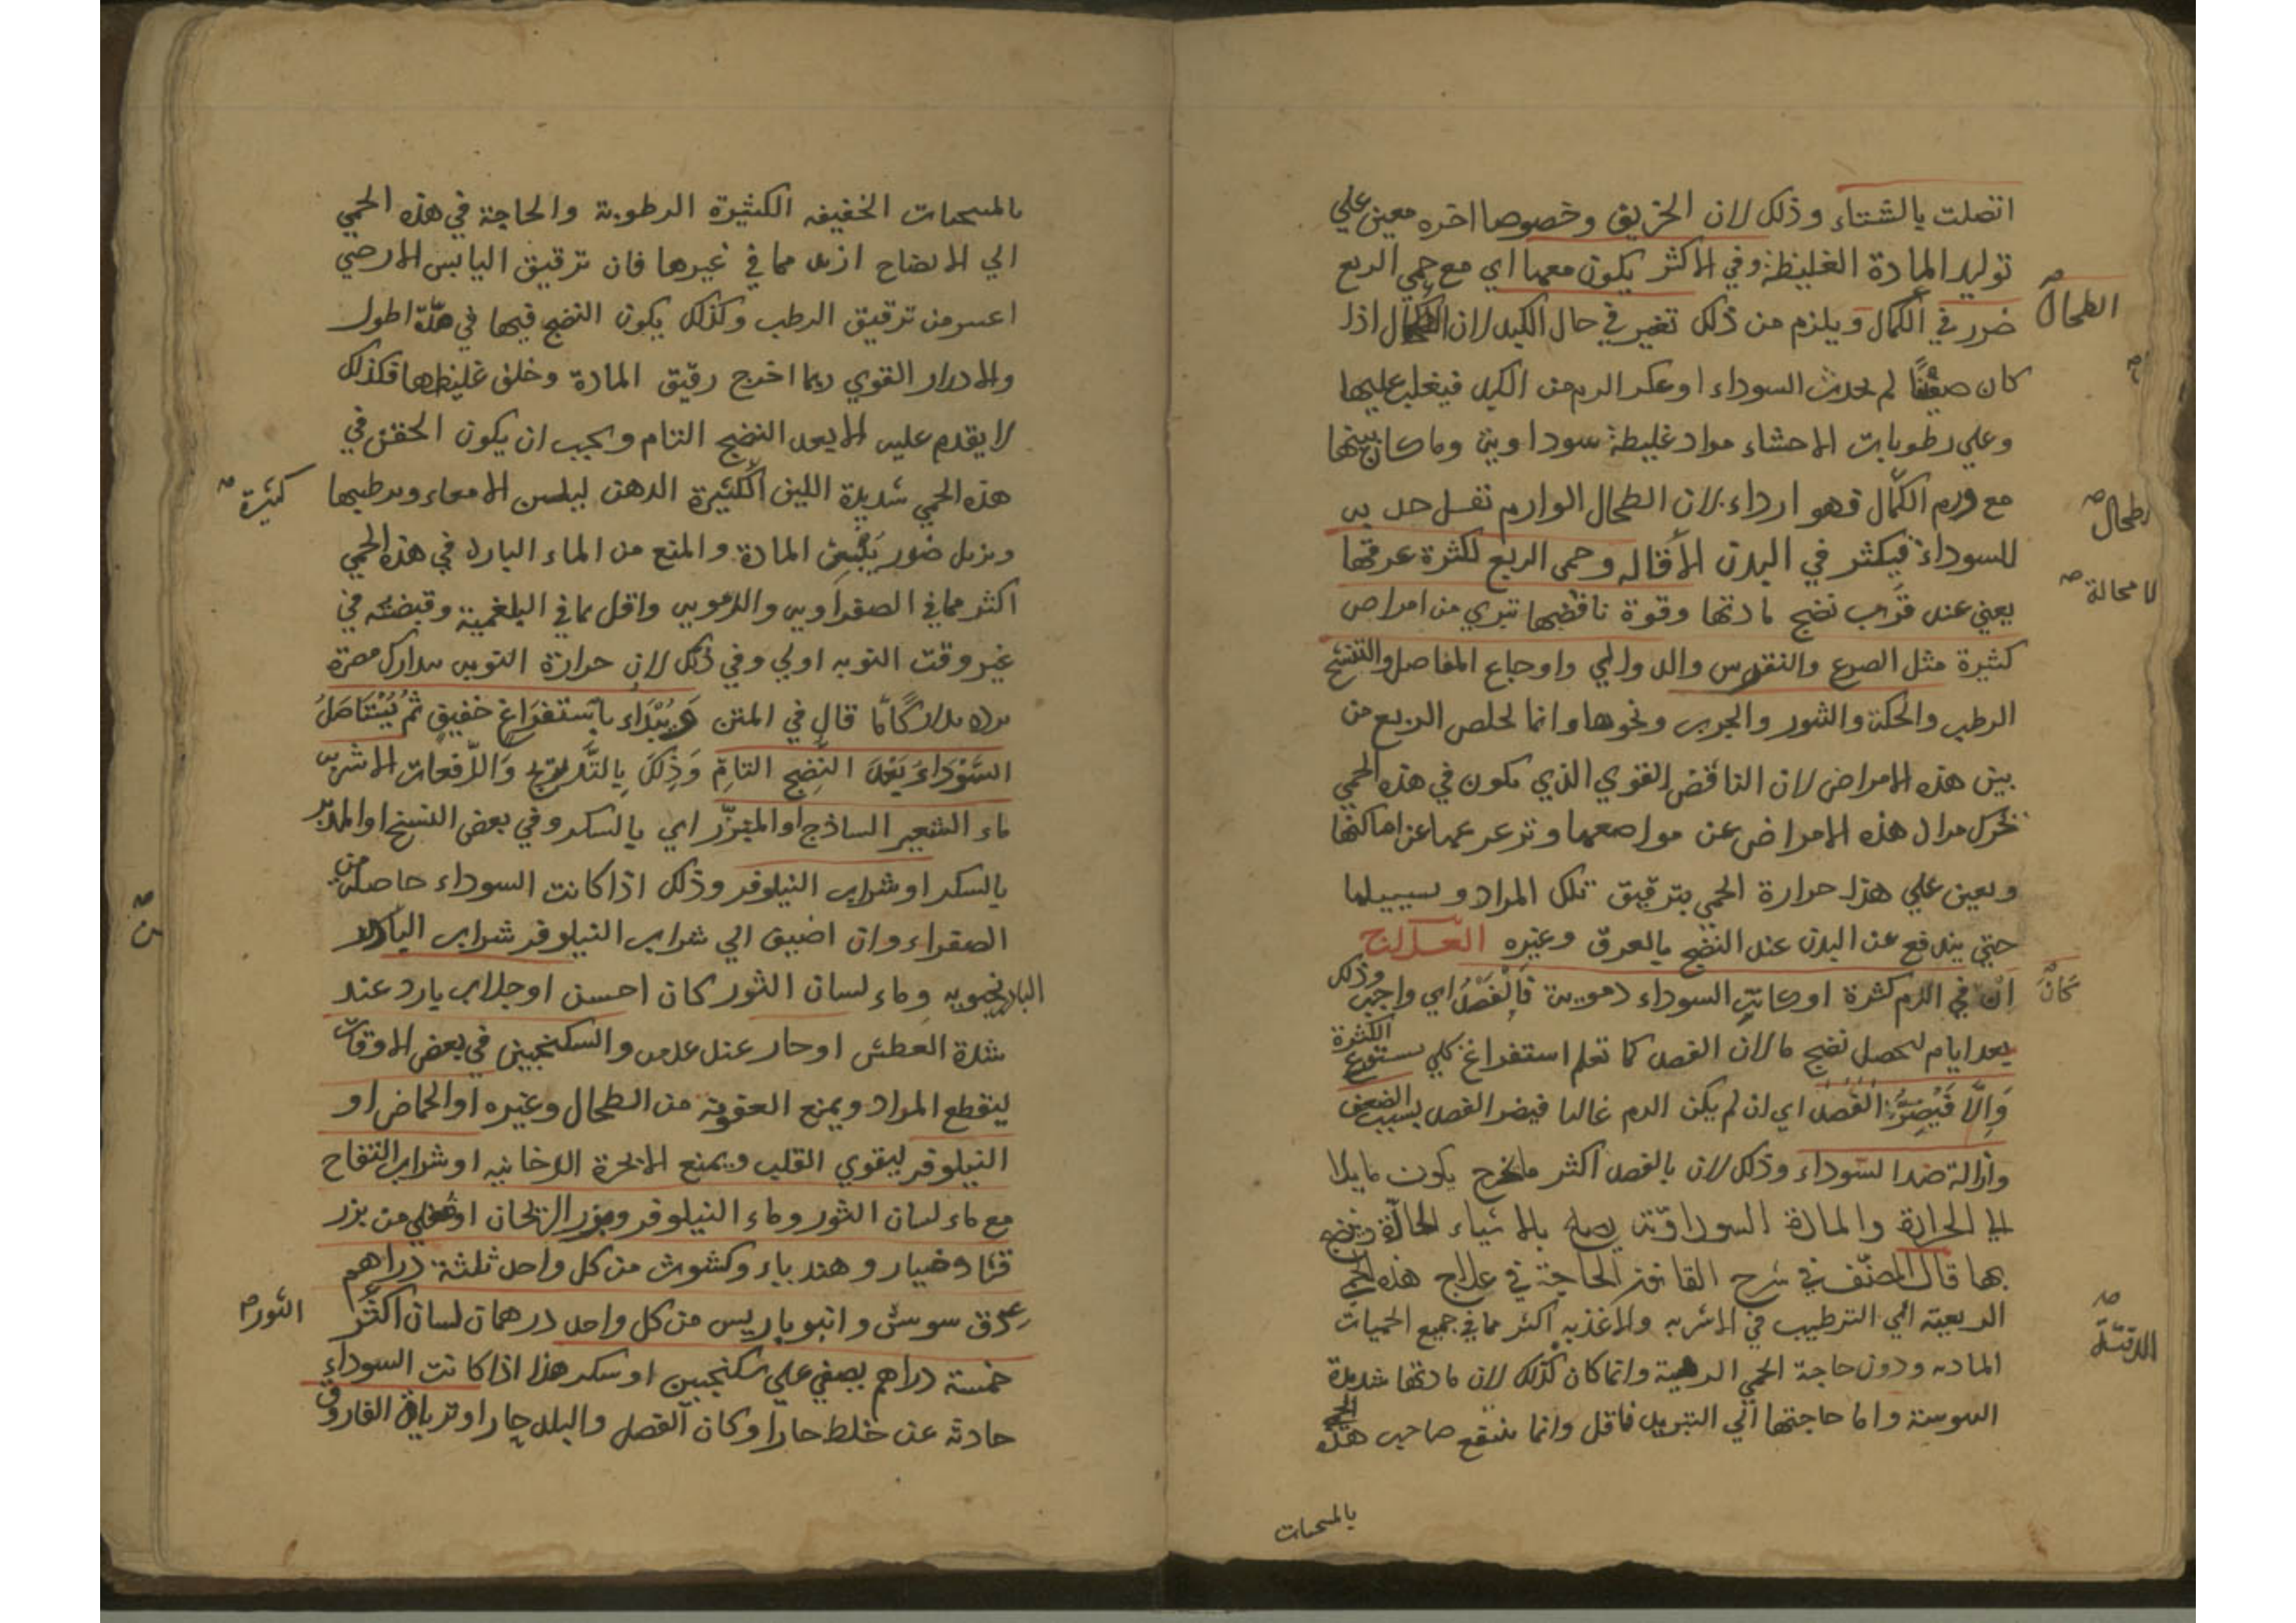 اتصلت بالشتاء وذلك لان الخريف وخصوصا اخره معين علي
توليد المادة الغليظة وفي الاكثر يكون معها اي مع حمي الربع
ضرر في الكمال ويلزم من ذلك تغير في حال الكبد لان الطحال اذا
الطحال
كان ضعيفا لم يجذب السوداء او عكر الدم من الكبد فيغلب عليها
وعلي رطوبات الاحشاء مواد غليظة سوداوية وما كان بينها
مع ورم الكمال فهو ارداء لان الطحال الوارم تقل جذبه
طحال
للسوداء فيكثر في البدن الا قاله وحمي الربع لكثرة عرقها
لا محالة
يعني عند قرب نضج مادتها وقوة نافضها تبري من امراض
كثيرة مثل الصرع والنقرس والدوالي واوجاع المفاصل والتشنج
الرطب والحكة والبثور والجرب ونحوها وانما تخلص الربع من
بين هذه الامراض لان النافض القوي الذي يكون في هذه الحمي
تحرك مواد هذه الامراض عن مواضعها وتزعزعها عن اماكنها
ويعين علي هذا حرارة الحمي بترقيق تلك المواد وتسييلها
حتي يندفع عن البدن عند النضج بالعرق وغيره العلاج
ان في الدم كثرة او كانت السوداء دموية فالفصد اي واجب وذلك
كان
بعد ايام ليحصل نضج ما لان الفصد كما تعلم استفراغ كلي يستفرغ الكثرة
والا فيضر الفصد اي ان لم يكن الدم غالبا فيضر الفصد بسبب الضعف
وازالة ضد السوداء وذلك لان بالفصد اكثر ما يخرج يكون مايلا
الي الحرارة والمادة السوداوية يصلح بالاشياء الحارة وينضج
بها قال المصنف في شرح القانون الحاجة في علاج هذه الحمي
الربعية الي الترطيب في الاشربه والاغذيه اكثر مما في جميع الحميات
المادية ودون حاجة الحمي الدقية وانما كان كذلك لان مادتها شديدة
الدقية
اليبوسة واما حاجتها الي التبريد فاقل وانما ينتفع صاحب هذه الحمي
بالمسخنات
بالمسخنات الخفيفه الكثيرة الرطوبة والحاجة في هذه الحمي
الي الانضاج ازيد مما في غيرها فان ترقيق اليابس الارضي
اعسر من ترقيق الرطب وكذلك يكون النضج فيها في مدة اطول
والادرار القوي ربما اخرج رقيق المادة وخلف غليظها فكذلك
لا يقدم عليه الا بعد النضج التام ويجب ان يكون الحقن في
هذه الحمي شديدة اللين الكثيرة الدهن ليلين الامعاء ويرطبها
كثيرة
ويزيل ضرر يبس المادة والمنع من الماء البارد في هذه الحمي
اكثر مما في الصفراوية والدموية واقل مما في البلغمية وقبضته في
غير وقت النوبه اولي وفي ذلك لان حرارة النوبه تدارك مضرة
برده تداركا ما قال في المتن ويبداء باستفراغ خفيف ثم يستاصل
السوداء بعد النضج التام وذلك بالتدريج والدفعات الاشربه
ماء الشعير الساذج او المبزر اي بالسكر وفي بعض النسخ او المدبر
بالسكر او شراب النيلوفر وذلك اذا كانت السوداء حاصلة من
الصفراء وان اضيف الي شراب النيلوفر شراب البادر
البادرنجبويه وماء لسان الثور كان احسن او جلاب بارد عند
شدة العطش او حار عند عدمه والسكنجبين في بعض الاوقات
ليقطع المواد ويمنع العفونة من الطحال وغيره او الحماض او
النيلوفر ليقوي القلب ويمنع الابخرة الدخانيه او شراب التفاح
مع ماء لسان الثور وماء النيلوفر وبزر الريحان او مغلي من بزر
قثا وخيار وهندباء وكشوث من كل واحد ثلثة دراهم
عرق سوس وانبوباريس من كل واحد درهمان لسان اكثر
الثور
خمسة دراهم يصفي علي سكنجبين او سكر هذا اذا كانت السوداء
حادثه عن خلط حار او كان الفصل والبلد حارا او ترياق الفاروق